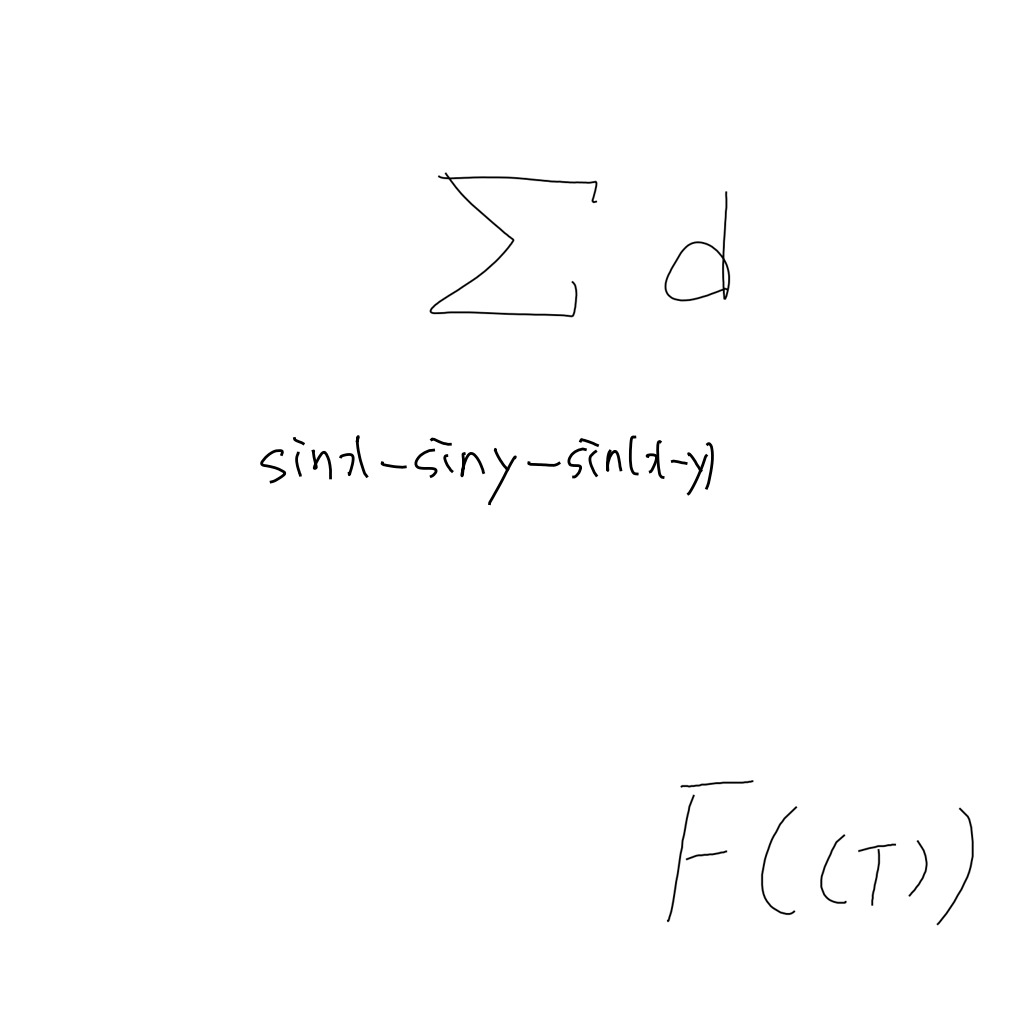 ∑ d
sinx-siny-sin(x-y)
F((T))